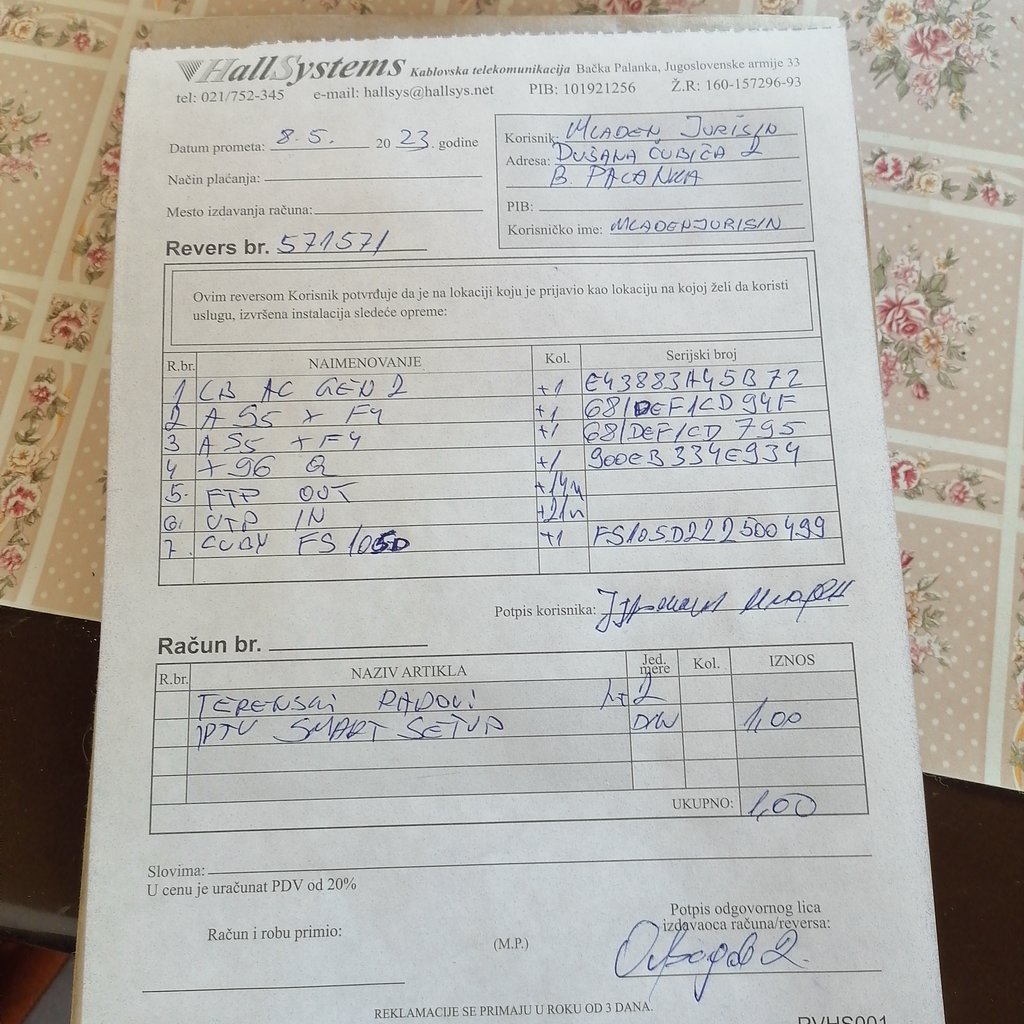 HallSystems Kablovska telekomunikacija Bačka Palanka, Jugoslovenske armije 33
tel: 021/752-345 e-mail: hallsys@hallsys.net PIB: 101921256 Ž.R: 160-157296-93
Datum prometa: 8.5. 2023. godine
Način plaćanja:
Mesto izdavanja računa:
Revers br. 571571
Korisnik: MLADEN JURISIN
Adresa: DUŠANA ĆUBIĆA 2
B. PALANKA
PIB:
Korisničko ime: MLADENJURISIN
Ovim reversom Korisnik potvrđuje da je na lokaciji koju je prijavio kao lokaciju na kojoj želi da koristi
uslugu, izvršena instalacija sledeće opreme:
R.br. NAIMENOVANJE Kol. Serijski broj
1 LB AC GEN 2 +1 E43883A45B72
2 A S5 X F4 +1 681DEF1CD94F
3 A S5 X F4 +1 681DEF1CD795
4 X 96 Q +1 900EB334E934
5. FTP OUT +14m
6. UTP IN +21m
7. CUBY FS105D +1 FS105D222500499
Potpis korisnika: Јуришин Младен
Račun br.
R.br. NAZIV ARTIKLA Jed. mere Kol. IZNOS
TERENSKI RADOVI h+2
IPTV SMART SETUP DIN 1,00
UKUPNO: 1,00
Slovima:
U cenu je uračunat PDV od 20%
Račun i robu primio:
(M.P.)
Potpis odgovornog lica
izdavaoca računa/reversa:
REKLAMACIJE SE PRIMAJU U ROKU OD 3 DANA.
RVHS001